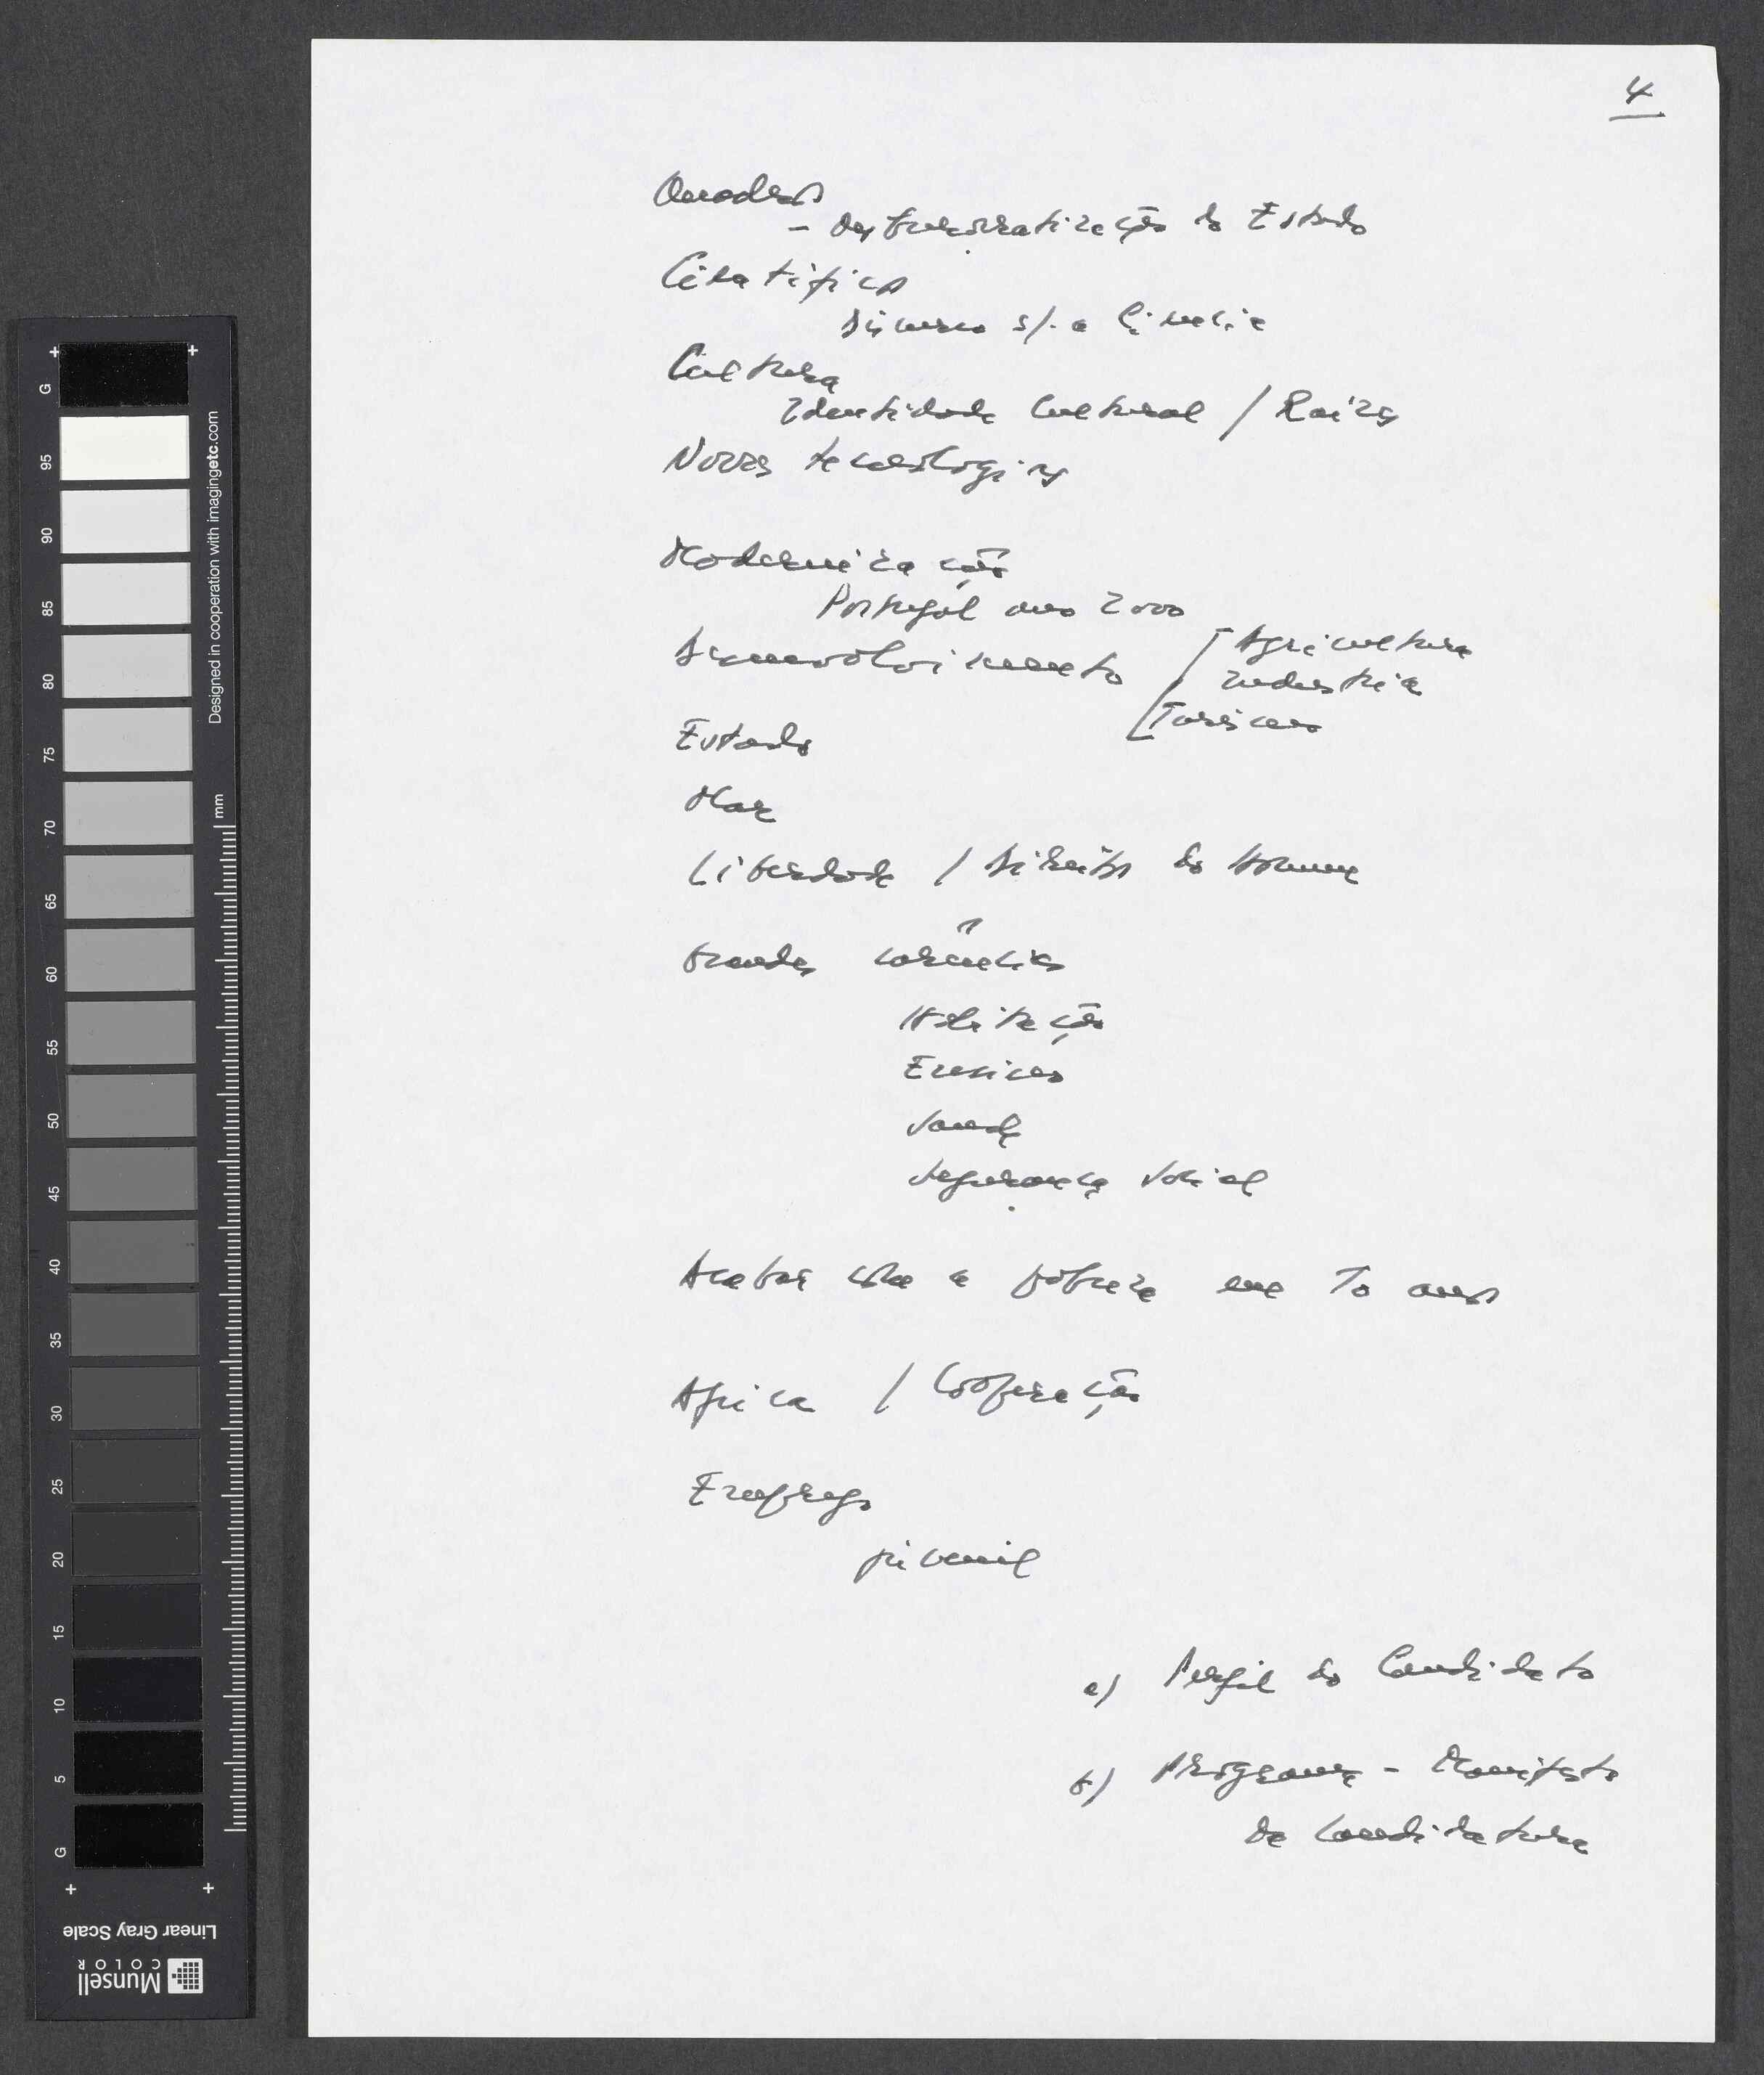 4
Quadros
- desburocratização do Estado
Científica
discurso s/. a Ciencia
Cultura
Identidade Cultural / Raizes
Novas tecnologias
Modernização
Portugal ano 2000
Desenvolvimento
Agricultura
Industria
Turismo
Estado
Mar
Liberdade / Direitos do Homem
Grandes carências
Habitação
Ensino
Saude
Segurança Social
Acabar com a pobreza em 10 anos
Africa / Cooperação
Emprego
juvenil
a) Perfil do Candidato
b) Programa - Manifesto
da Candidatura
G
95
90
85
80
75
70
65
60
55
50
45
40
35
30
25
20
15
10
5
G
Designed in cooperation with imagingetc.com
mm
Linear Gray Scale
Munsell
COLOR